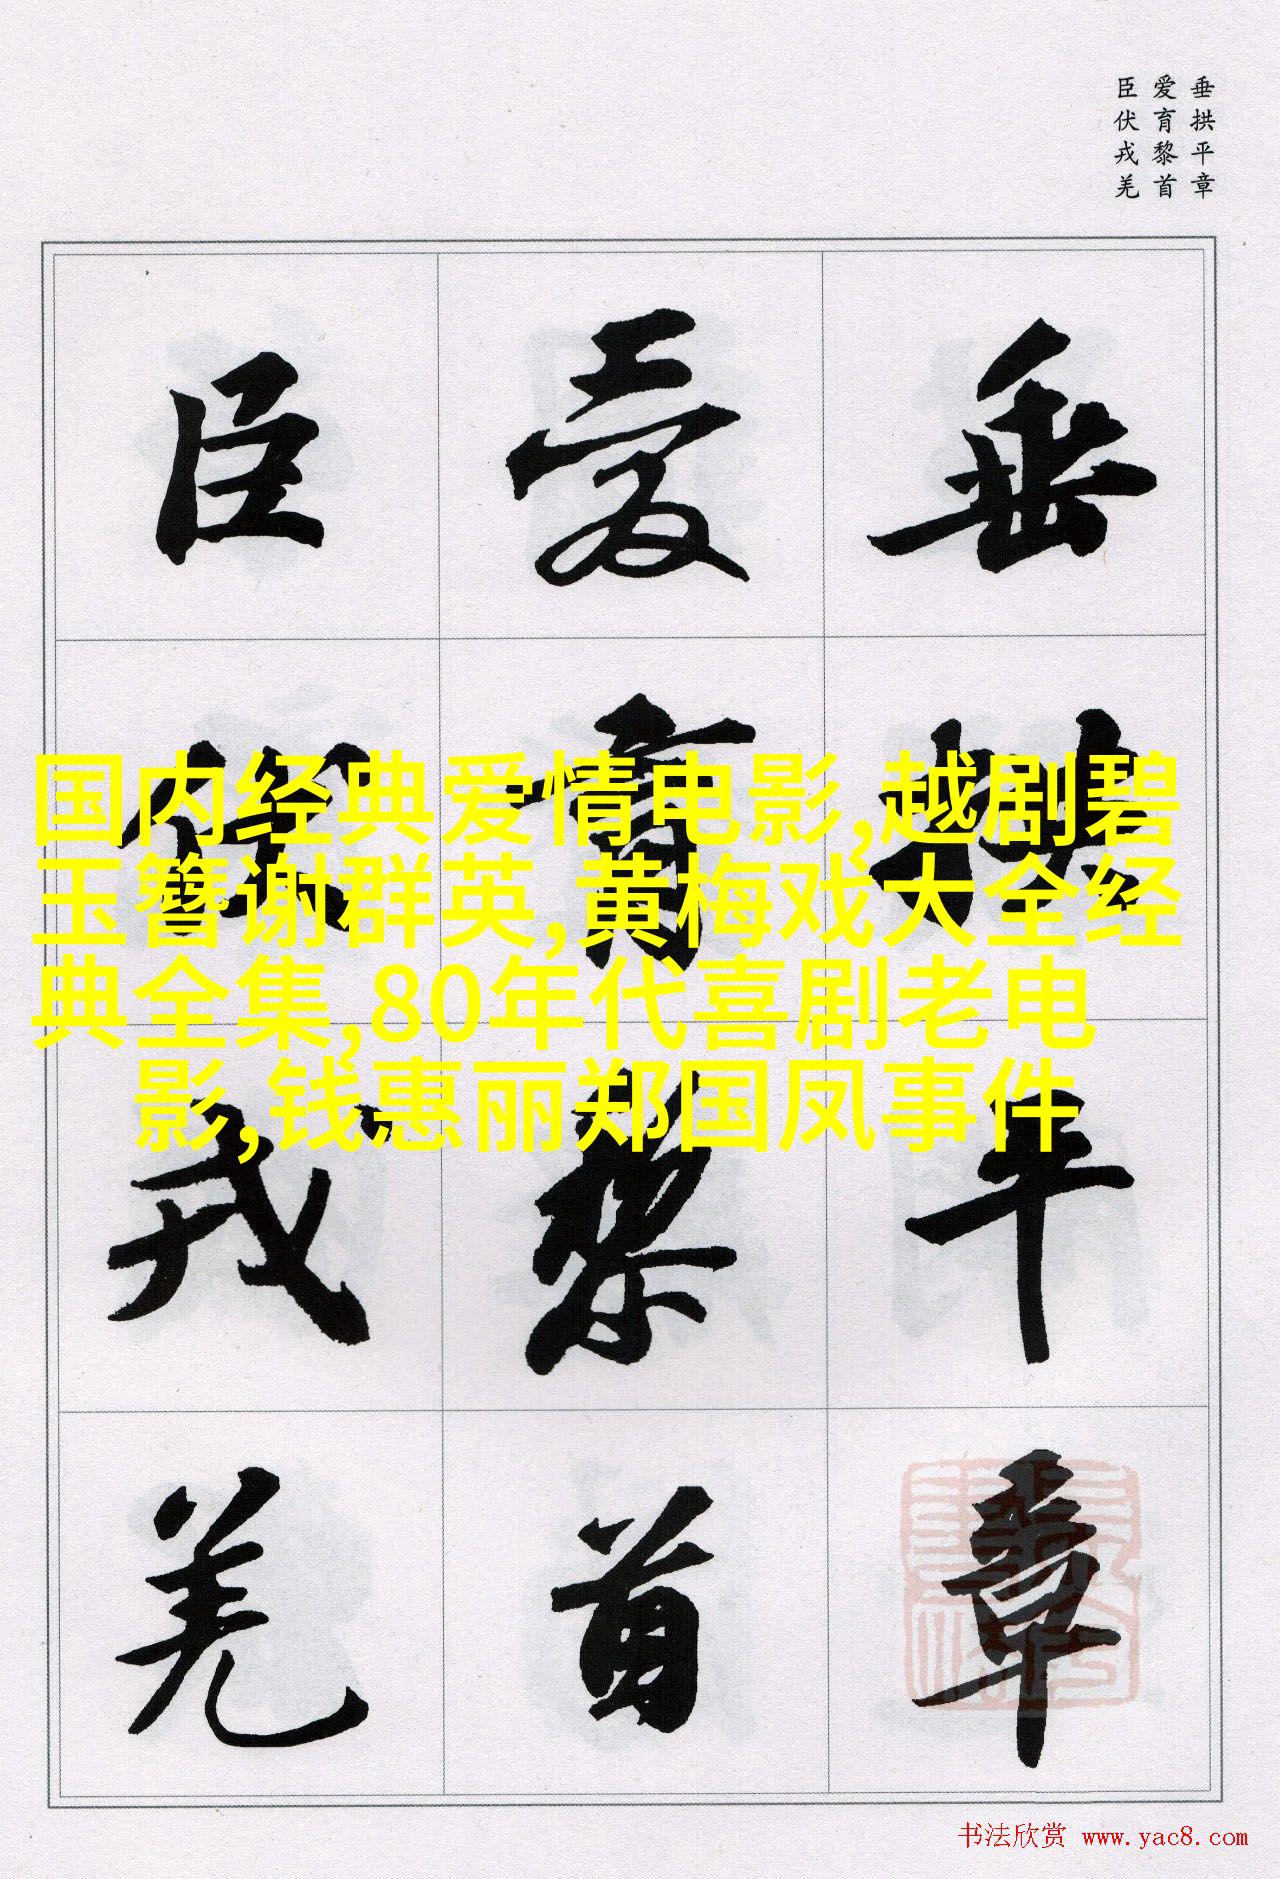 垂拱平章
爱育黎首
臣伏戎羌
垂拱平章
爱育黎首
臣伏戎羌
国内经典爱情电影,越剧碧
玉簪谢群英,黄梅戏大全经
典全集,80年代喜剧老电
影,钱惠丽郑国凤事件
书法欣赏 www.yac8.com